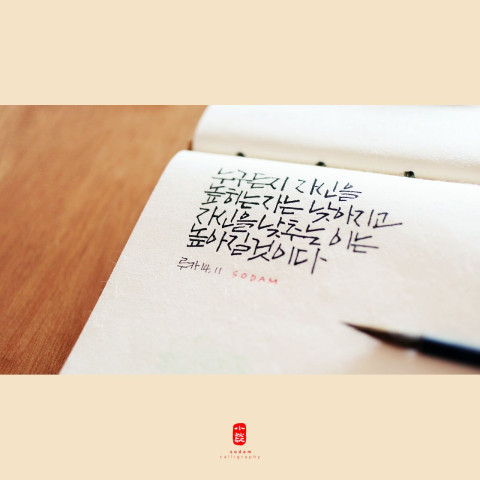 누구든지 자신을
높이는 자는 낮아지고
자신을 낮추는 이는
높아질 것이다
루카 14, 11 SODAM
sodam
calligraphy